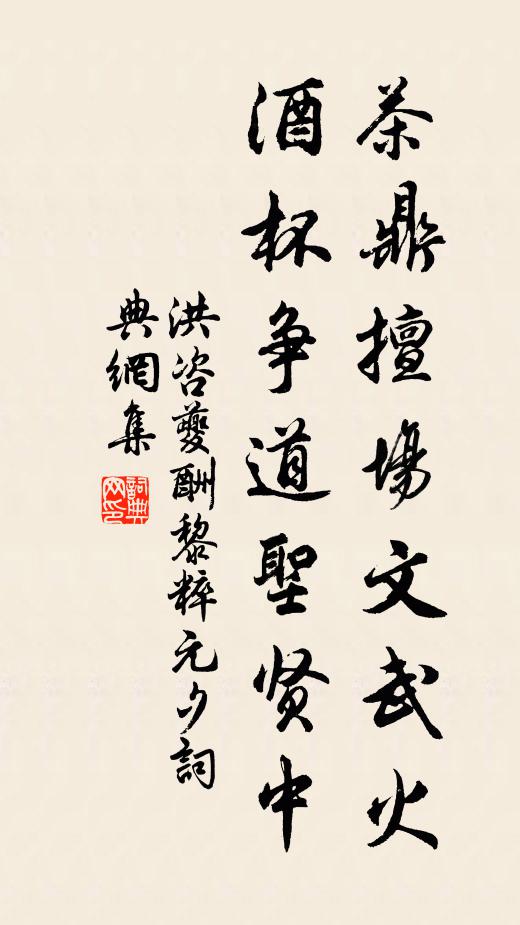 茶鼎擅場文武火
酒杯争道聖贤中
洪咨夔酬黎粹元夕詞
典網集
詞典網印